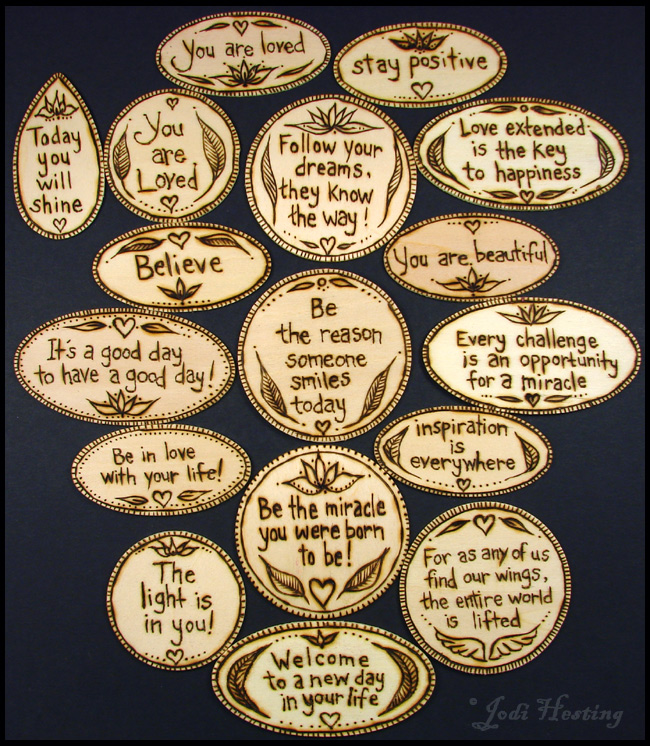 You are loved
stay positive
Today
you
will
shine
You
are
Loved
Follow your
dreams,
they know
the way!
Love extended
is the key
to happiness
Believe
You are beautiful
It's a good day
to have a good day!
Be
the reason
someone
smiles
today
Every challenge
is an opportunity
for a miracle
Be in love
with your life!
inspiration
is
everywhere
Be the miracle
you were born
to be!
The
light is
in you!
For as any of us
find our wings,
the entire world
is lifted
Welcome
to a new day
in your life
©Jodi Hesting